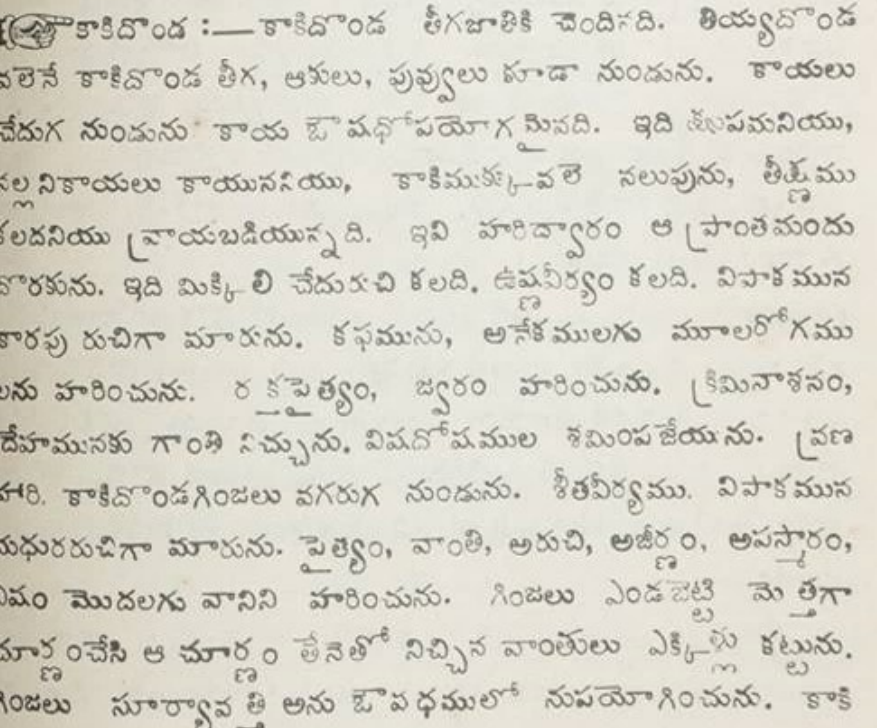 కాకిదొండ :— కాకిదొండ తీగజాతికి చెందినది. తియ్యదొండ
వలెనే కాకిదొండ తీగ, ఆకులు, పువ్వులు కూడా నుండును. కాయలు
చేదుగ నుండును కాయ ఔషధోపయోగమైనది. ఇది
నల్లనికాయలు కాయుననియు, కాకిముక్కువలె నలుపును, తీక్ష్ణము
కలదనియు వ్రాయబడియున్నది. ఇవి హరిద్వారం ఆ ప్రాంతమందు
దొరకును. ఇది మిక్కిలి చేదురుచి కలది. ఉష్ణవీర్యం కలది. విపాకమున
కారపు రుచిగా మారును. కఫమును, అనేకములగు మూలరోగము
లను హరించును. రక్తపైత్యం, జ్వరం హరించును. క్రిమినాశనం,
దేహమునకు గాంతి నిచ్చును. విషదోషముల శమింపజేయును. వ్రణ
హారి. కాకిదొండగింజలు వగరుగ నుండును. శీతవీర్యము. విపాకమున
మధురరుచిగా మారును. పైత్యం, వాంతి, అరుచి, అజీర్ణం, అపస్మారం,
విషం మొదలగు వానిని హరించును. గింజలు ఎండబెట్టి మెత్తగా
చూర్ణంచేసి ఆ చూర్ణం తేనెతో నిచ్చిన వాంతులు ఎక్కిళ్లు కట్టును.
గింజలు సూర్యావ త్తి అను ఔషధములో నుపయోగించును. కాకి